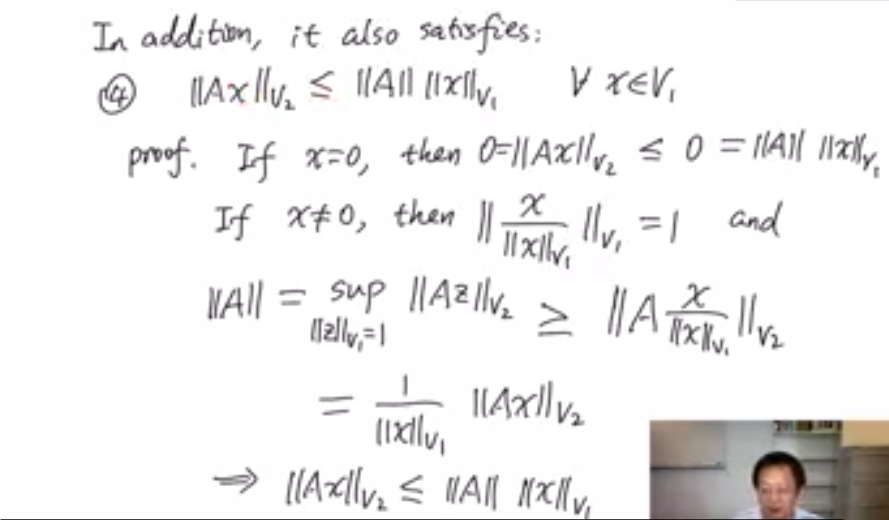 In addition, it also satisfies:
④ ||Ax||_{V₂} ≤ ||A|| ||x||_{V₁} ∀ x∈V₁
proof. If x=0, then 0=||Ax||_{V₂} ≤ 0 = ||A|| ||x||_{V₁}
If x≠0, then || x/||x||_{V₁} ||_{V₁} = 1 and
||A|| = sup_{||z||_{V₁}=1} ||Az||_{V₂} ≥ ||A x/||x||_{V₁} ||_{V₂}
= 1/||x||_{V₁} ||Ax||_{V₂}
⇒ ||Ax||_{V₂} ≤ ||A|| ||x||_{V₁}